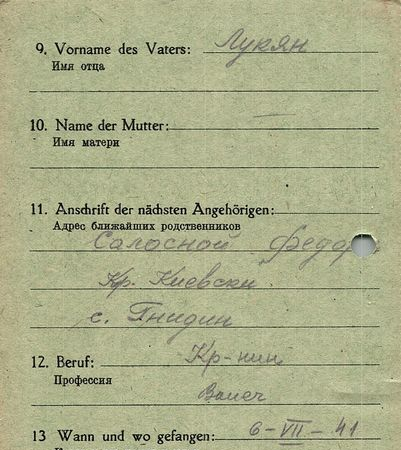 9. Vorname des Vaters: Лукян
Имя отца
10. Name der Mutter: —
Имя матери
11. Anschrift der nächsten Angehörigen:
Адрес ближайших родственников
Салосной Федор
Кр. Киевски
с. Гнидин
12. Beruf: Кр-нин
Профессия
Bauer
13 Wann und wo gefangen: 6-VII-41